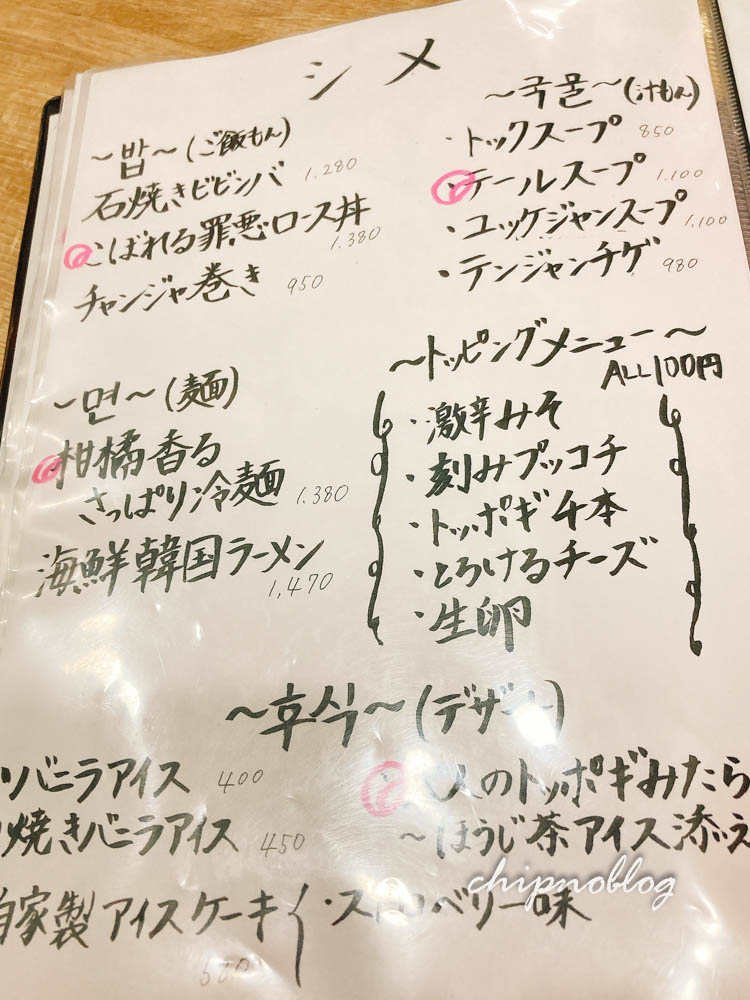 シメ
~밥~(ご飯もん)
石焼きビビンバ 1.280
こぼれる罪悪ロース丼 1.380
チャンジャ巻き 950
~국물~(汁もん)
・トックスープ 850
・テールスープ 1.100
・ユッケジャンスープ 1.100
・テンジャンチゲ 980
~면~(麺)
柑橘香る
さっぱり冷麺 1.380
海鮮韓国ラーメン 1,470
~トッピングメニュー~
ALL100円
・激辛みそ
・刻みプッコチ
・トッポギ4本
・とろけるチーズ
・生卵
~후식~(デザート)
バニラアイス 400
焼きバニラアイス 450
自家製アイスケーキ
・ストロベリー味
人のトッポギみたら
~ほうじ茶アイス添え
chipnoblog